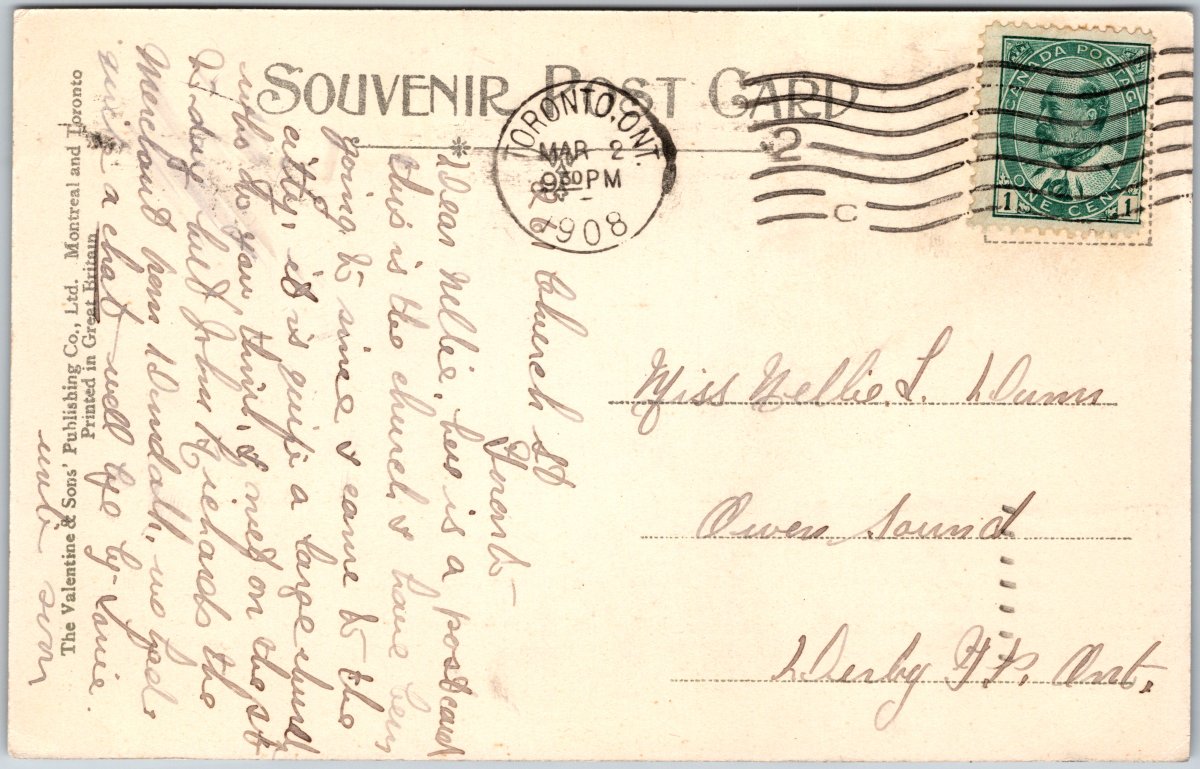 SOUVENIR POST CARD
TORONTO, ONT.
MAR 2
9 30 PM
1908
2
C
CANADA POSTAGE
1 ONE CENT 1
Miss Nellie L. Dunn
Owen Sound
Derby T.P. Ont.
Church St
Toronto
Dear Nellie, here is a postcard
this is the church I have been
going to since I came to the
city, it is quite a large church
who do you think I met on the st
to day but John Richards the
Merchant from Dundalk, we had
quite a chat well bye by-
write soon
The Valentine & Sons' Publishing Co., Ltd. Montreal and Toronto
Printed in Great Britain.